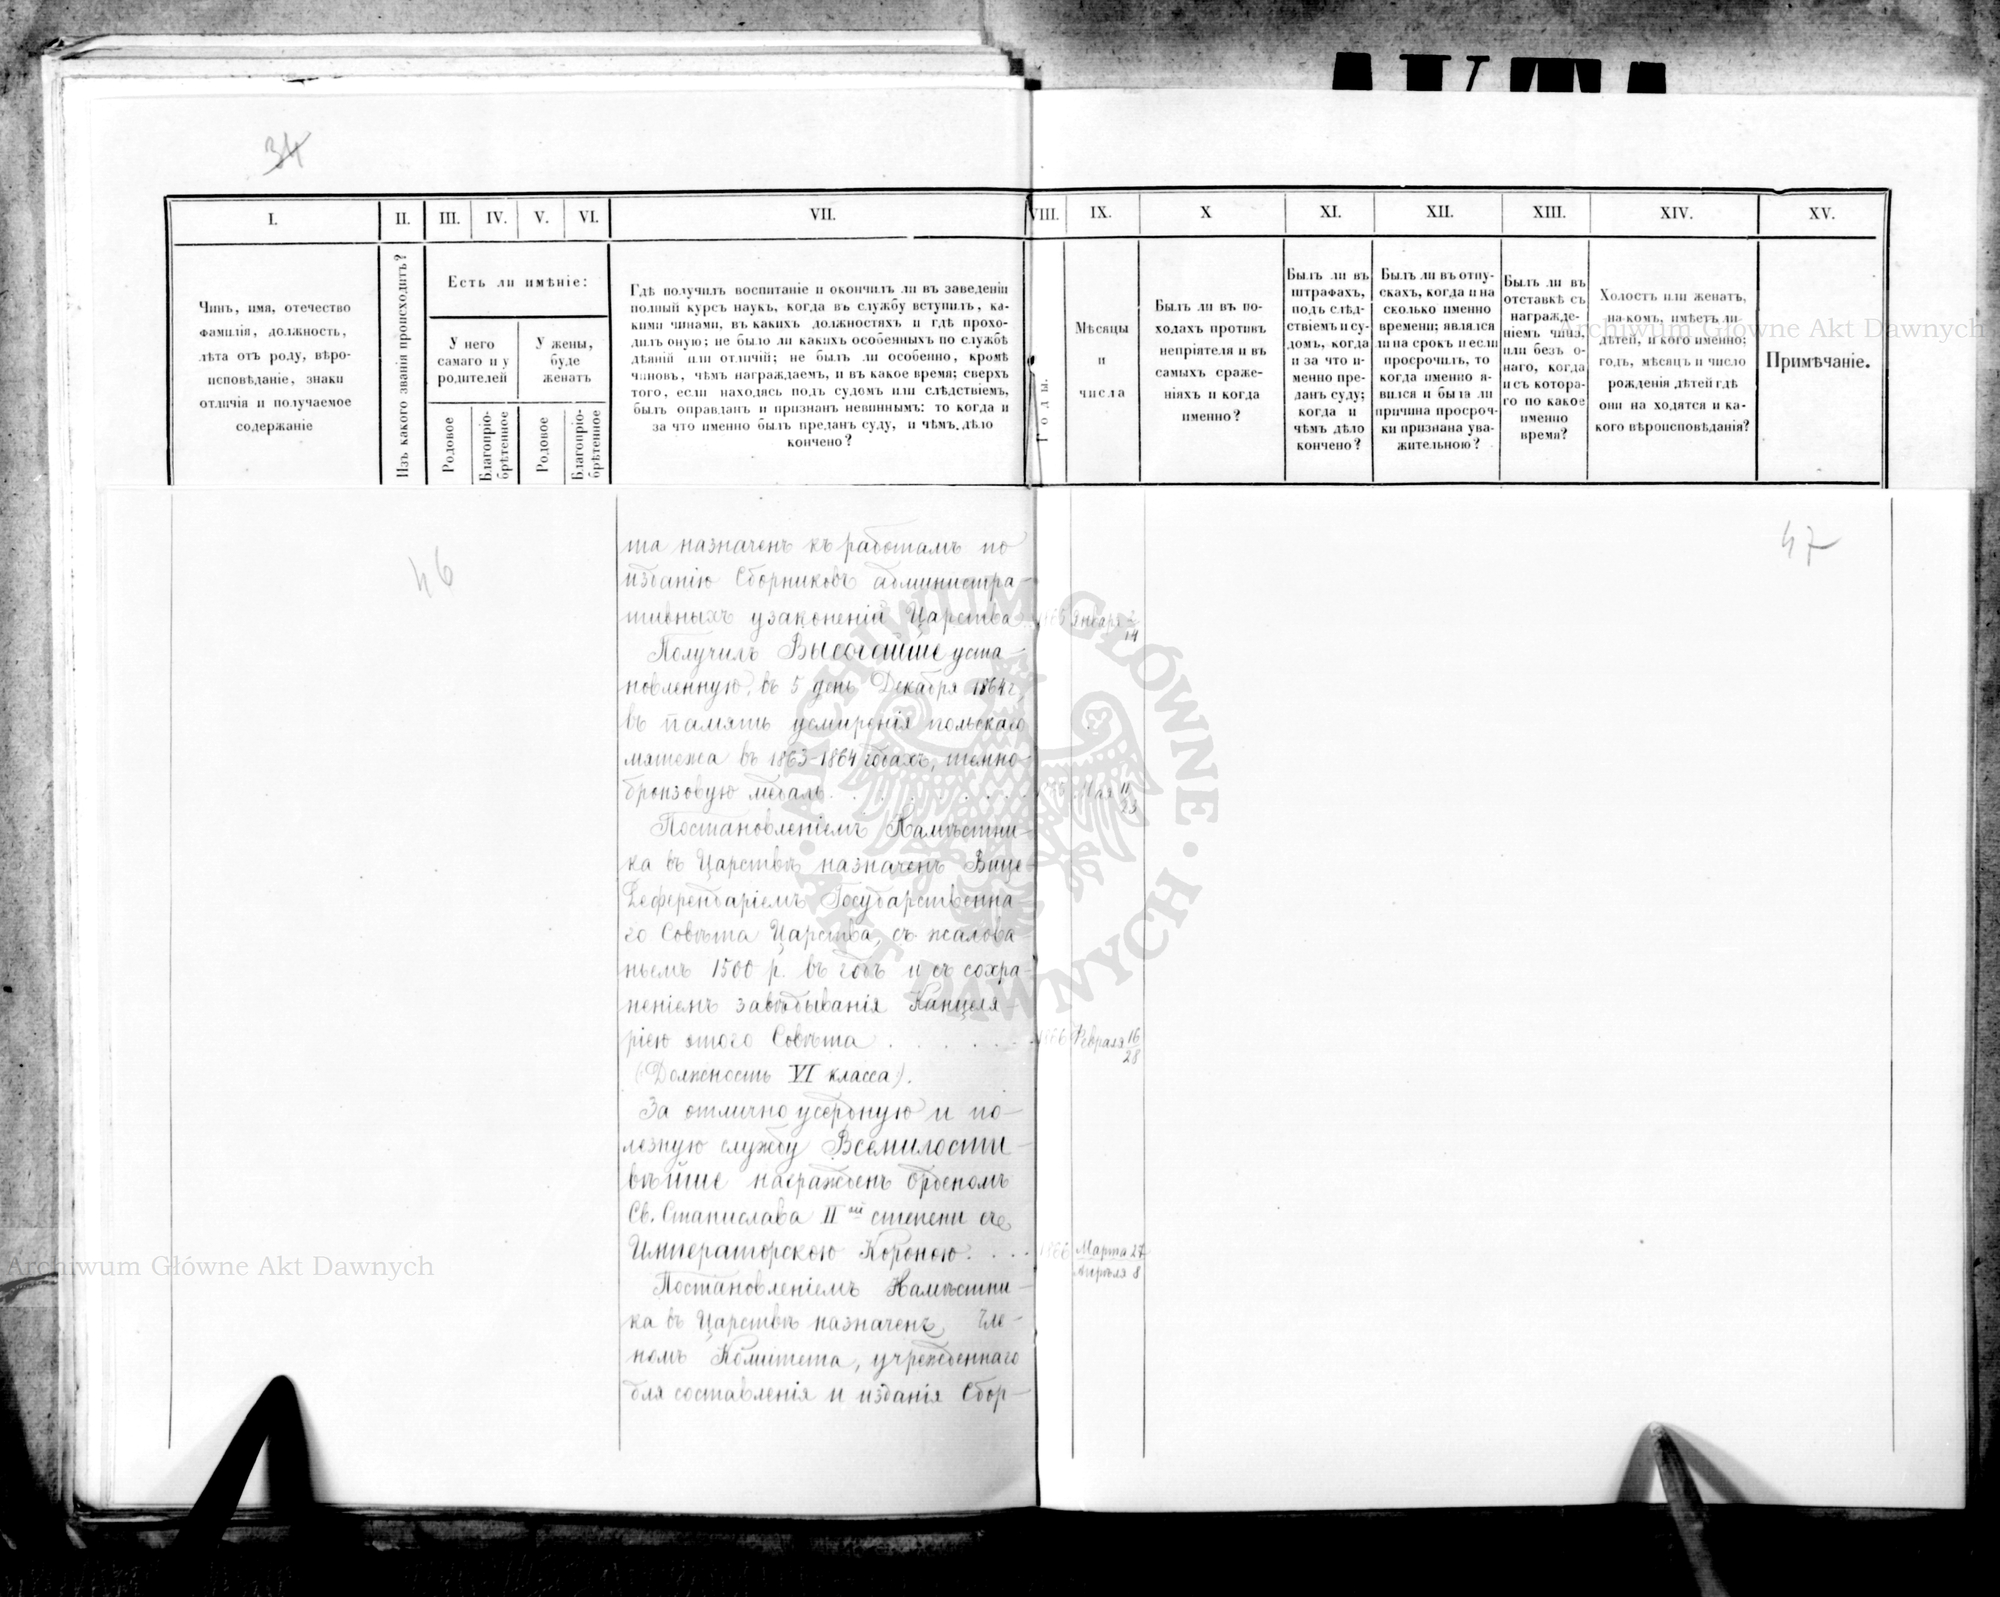 34
I.
II.
III.
IV.
V.
VI.
VII.
VIII.
IX.
X
XI.
XII.
XIII.
XIV.
XV.
Чинъ, имя, отечество
фамилія, должность,
лѣта отъ роду, вѣро-
исповѣданіе, знаки
отличія и получаемое
содержаніе
Изъ какого званія происходитъ?
Есть ли имѣніе:
У него
самаго и у
родителей
У жены,
буде
женатъ
Родовое
Благопріо-
брѣтенное
Родовое
Благопріо-
брѣтенное
Гдѣ получилъ воспитаніе и окончилъ ли въ заведеніи
полный курсъ наукъ, когда въ службу вступилъ, ка-
кими чинами, въ какихъ должностяхъ и гдѣ прохо-
дилъ оную; не было ли какихъ особенныхъ по службѣ
дѣяній или отличій; не былъ ли особенно, кромѣ
чиновъ, чѣмъ награждаемъ, и въ какое время; сверхъ
того, если находясь подъ судомъ или слѣдствіемъ,
былъ оправданъ и признанъ невиннымъ: то когда и
за что именно былъ преданъ суду, и чѣмъ дѣло
кончено?
Годы.
Мѣсяцы
и
числа
Былъ ли въ по-
ходахъ противъ
непріятеля и въ
самыхъ сраже-
ніяхъ и когда
именно?
Былъ ли въ
штрафахъ,
подъ слѣд-
ствіемъ и су-
домъ, когда
и за что и-
менно пре-
данъ суду;
когда и
чѣмъ дѣло
кончено?
Былъ ли въ отпу-
скахъ, когда и на
сколько именно
времени; являлся
ли на срокъ и если
просрочилъ, то
когда именно я-
вился и была ли
причина просроч-
ки признана ува-
жительною?
Былъ ли въ
отставкѣ съ
награжде-
ніемъ чина,
или безъ о-
наго, когда
и съ котора-
го по какое
именно
время?
Холостъ или женатъ,
на комъ, имѣетъ ли
дѣтей, и кого именно;
годъ, мѣсяцъ и число
рожденія дѣтей гдѣ
они на ходятся и ка-
кого вѣроисповѣданія?
Примѣчаніе.
Archiwum Główne Akt Dawnych
46
47
та назначенъ къ работамъ по
изданію Сборниковъ администра-
тивныхъ узаконеній Царства
Января 2/14
Получилъ Высочайше уста-
новленную, въ 5 день Декабря 1864 г,
въ память усмиренія польскаго
мятежа въ 1863-1864 годахъ, темно-
бронзовую медаль. . . . . . .
Мая 11/23
Постановленіемъ Намѣстни-
ка въ Царствѣ назначенъ Вице
Референдаріемъ Государственна
го Совѣта Царства, съ жалова
ньемъ 1500 р. въ годъ и съ сохра-
неніемъ завѣдыванія Канцеля-
ріею этого Совѣта . . . . . .
1866 Февраля 16/28
(Должность VI класса).
За отлично усердную и по-
лезную службу Всемилости-
вѣйше награжденъ Орденомъ
Св. Станислава II ой степени съ
Императорскою Короною. . . .
1866 Марта 27/Апрѣля 8
Постановленіемъ Намѣстни-
ка въ Царствѣ назначенъ Чле-
номъ Комитета, учрежденнаго
для составленія и изданія Сбор-
ARCHIWUM GŁÓWNE · AKT DAWNYCH ·
Archiwum Główne Akt Dawnych